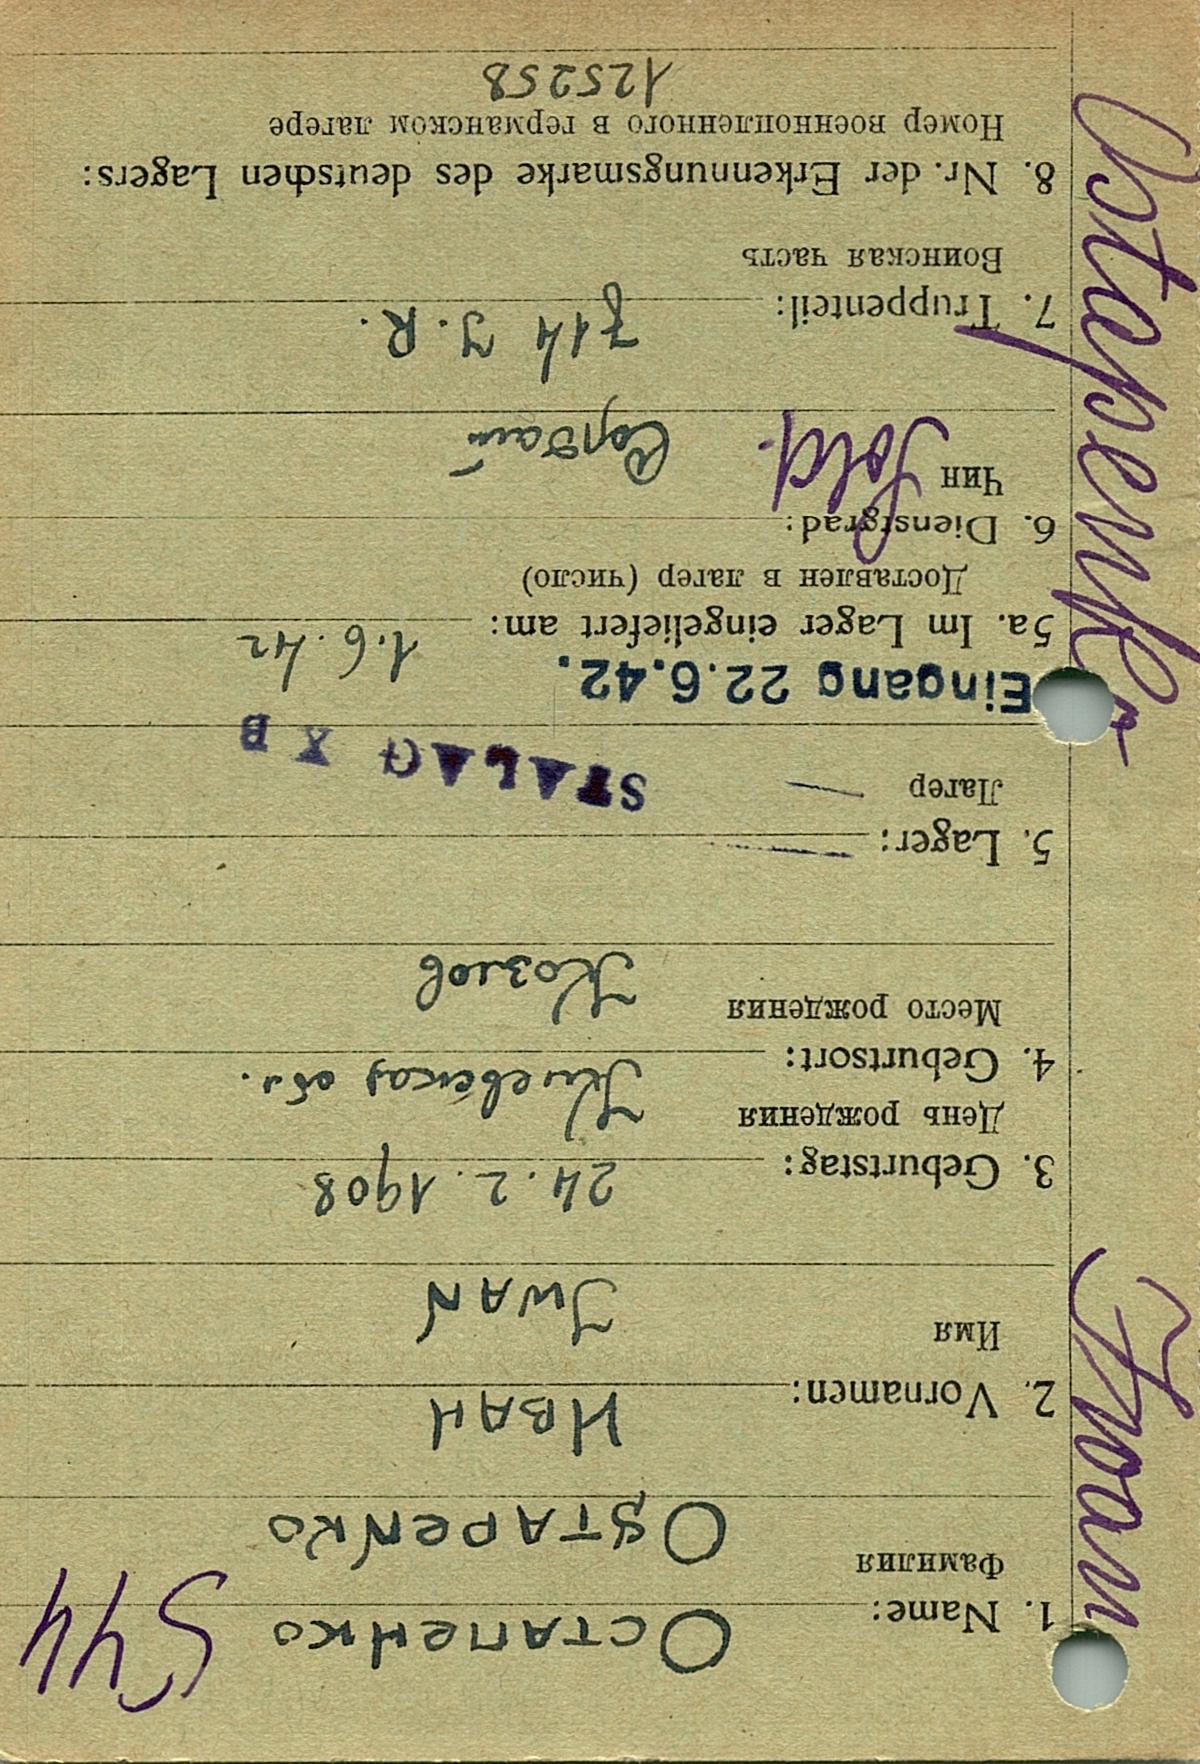 544
1. Name: Остапенко
Фамилия
OSTAPENKO
2. Vornamen: Иван
Имя
IWAN
3. Geburtstag: 24.2.1908
День рождения
Киевская обл.
4. Geburtsort:
Место рождения
Козлов
5. Lager:
Лагер
STALAG X B
Eingang 22.6.42.
5a. Im Lager eingeliefert am: 1.6.42
Доставлен в лагер (число)
6. Dienstgrad:
Чин Sold.
7. Truppenteil: 714 J.R.
Воинская часть
8. Nr. der Erkennungsmarke des deutschen Lagers:
Номер военнопленного в германском лагере
125258
Iwan Ostapenko